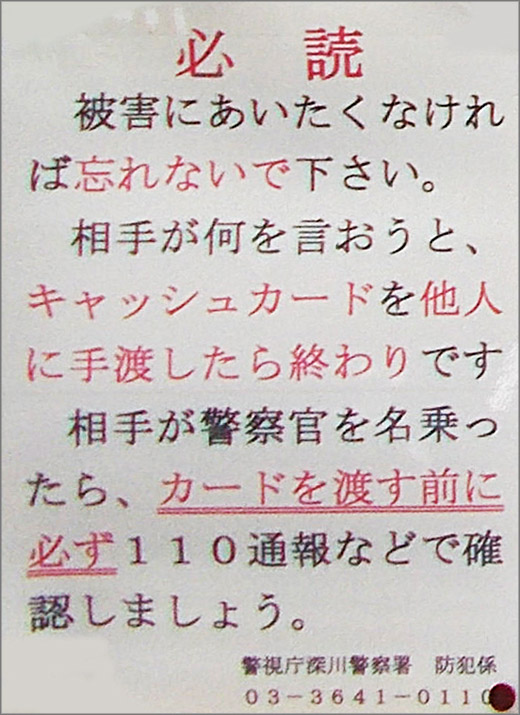 必　読
　被害にあいたくなけれ
ば忘れないで下さい。
　相手が何を言おうと、
キャッシュカードを他人
に手渡したら終わりです
　相手が警察官を名乗っ
たら、カードを渡す前に
必ず１１０通報などで確
認しましょう。
警視庁深川警察署　防犯係
０３－３６４１－０１１０